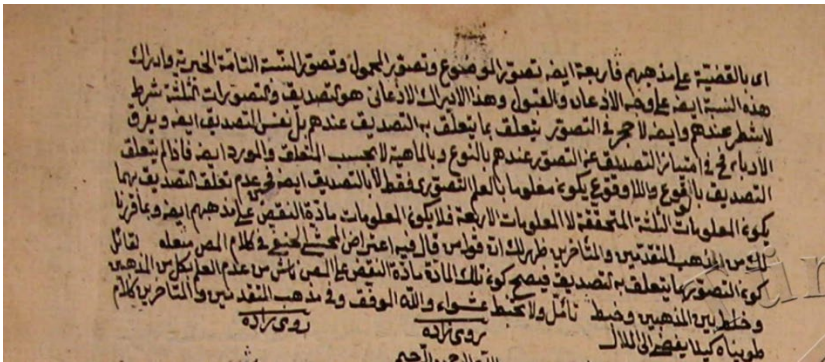 اى بالقضيّة على مذهبهم فاربعة ايضه تصوّر الموضوع وتصوّر المحمول وتصوّر النسبة التامّة الخبرية وادراك
هذه النسبة ايضه على وجه الاذعان والقبول وهذا الادراك الاذعانى هو التصديق والتصورات الثلثة شرط
لا شطر عندهم وايضه لا حجر فى التصور يتعلق بما يتعلق به التصديق عندهم بل بنفس التصديق ايضه ويفرق
فح امتياز التصديق عن التصور عندهم بالنوع وبالماهية لا بحسب المتعلق والمورد ايضه فاذا لم يتعلق
التصديق بالوقوع واللاوقوع يكون معلوما بالعلم التصورى فقط لا بالتصديق ايضه فى عدم تعلق التصديق بهما
يكون المعلومات الثلثة المتحققة لا المعلومات الاربعة فلا يكون المعلومات مادّة النقص على مذهبهم ايضه وبما قررنا
لك من المذهب المتقدمين والمتأخرين ظهر لك ان قوله من قال فيه اعتراض المحشى فى كلام المص منعله لقائل
كون التصور بما يتعلق به التصديق فيصح كون تلك المادّة مادّة النقص على المص ناش من عدم العلم بكل من المذهبين
وخلط بين المذهبين وخبط تأمّل ولا تخبط عشواء والله الموفق وفى مذهب المتقدمين والمتأخرين كلام
طويناه كيلا يفضى الى الملال روى زاده روى زاده